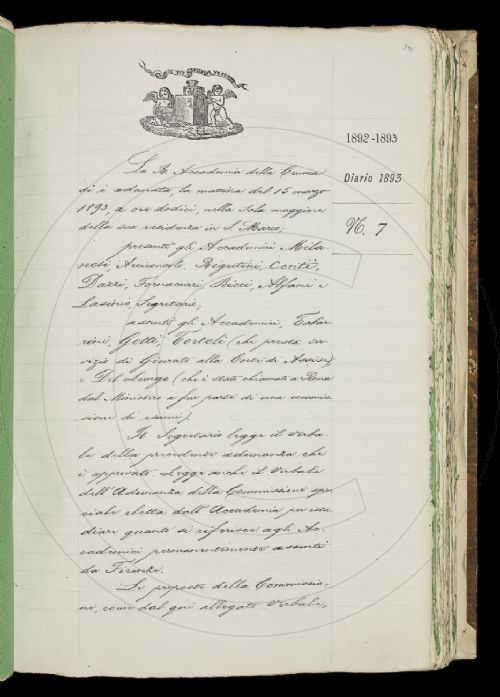 1892-1893
Diario 1893
N. 7
La R. Accademia della Crusca
si è adunata la mattina del 15 marzo
1893, a ore dodici, nella Sala maggiore
della sua residenza in S. Marco;
presenti gli Accademici Mila-
nesi Arciconsolo, Rigutini, Conti,
Dazzi, Fornaciari, Ricci, Alfani e
Lasinio, Segretario;
assenti gli Accademici, Tabar-
rini, Gotti, Tortoli (che presta ser-
vizio di Giurato alla Corte di Assise)
e Del Lungo (che è stato chiamato a Roma
dal Ministero a far parte di una commis-
sione di esami).
Il Segretario legge il verba-
le della precedente adunanza che
è approvato. Legge anche il Verbale
dell'Adunanza della Commissione spe-
ciale eletta dall'Accademia per istu-
diare quanto si riferisce agli Ac-
cademici permanentemente assenti
da Firenze.
Le proposte della Commissio-
ne, come dal qui allegato Verbale,